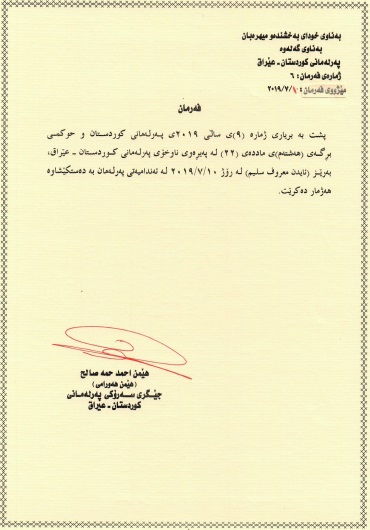 بەناوی خودای بەخشندەو میهرەبان
بەناوی گەلەوە
پەرلەمانی کوردستان - عێراق
ژمارەی فەرمان: ٦
مێژووی فەرمان: ٢٠١٩/٧/١٠
فەرمان
پشت بە بریاری ژمارە (٩)ی ساڵی ٢٠١٩ی پەرلەمانی کوردستان و حوکمی
برگەی (هەشتەم)ی ماددەی (٢٢) لە پەیرەوی ناوخۆی پەرلەمانی کوردستان - عێراق،
بەرێز (ئایدن معروف سلیم) لە رۆژ ٢٠١٩/٧/١٠ لە ئەندامیەتی پەرلەمان بە دەستکێشاوە
هەژمار دەکرێت.
هێمن احمد حمە صالح
(هێمن هەورامی)
جێگری سەرۆکی پەرلەمانی
کوردستان - عیراق